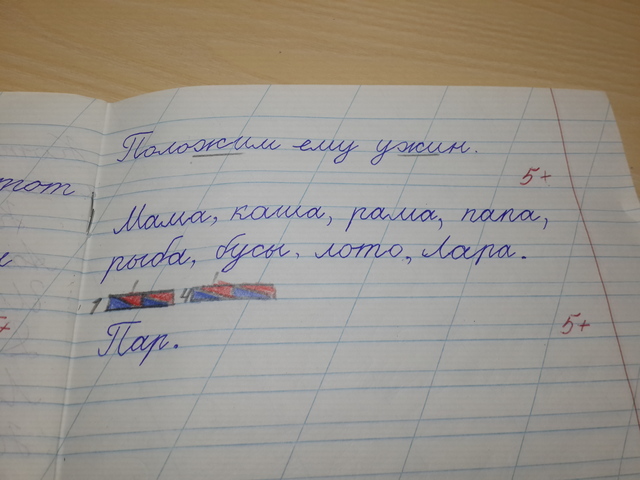 Положим ему ужин.
тот
5+
Мама, каша, рама, папа,
рыба, бусы, лото, Лара.
1 4
Пар.
5+